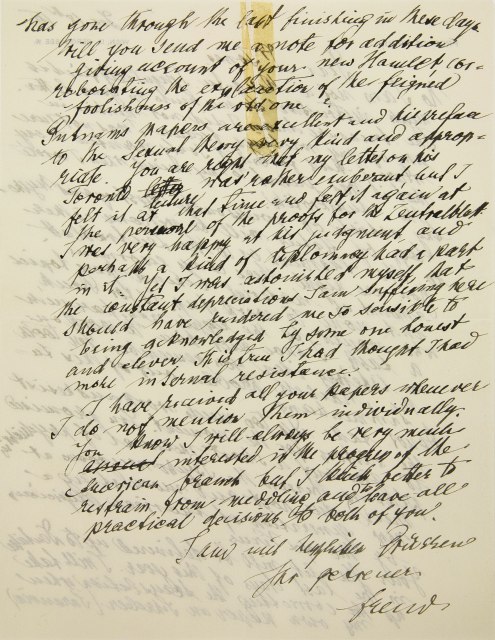 has gone through the last finishing in these days
Will you send me a note for addition
giving account of your new Hamlet, cor-
roborating the explanation of the feigned
foolishness of the old one?
Putnams papers are excellent and his preface
to the Sexual theory very kind and approp-
riate. You are right that my letter on his
Toronto lecture was rather exuberant and I
felt it at that time and felt it again at
the of the proofs for the Zentralblatt.
I was very happy at his judgment, and
perhaps a kind of diplomacy had a part
in it. Yet I was astonished myself that
the constant depreciations I am suffering here
should have rendered me so sensible to
being acknowledged by some one honest
and clever. It is true I had thought I had
more internal resistance.
I have received all your papers whenever
I do not mention them individually.
You know I will always be very much
interested in the progress of the
American branch but I think better to
restrain from meddling and leave all
practical decisions to both of you.
I am mit herzlichen Grüssen
Ihr getreuer
Freud